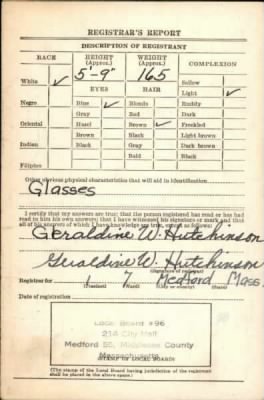 REGISTRAR'S REPORT
DESCRIPTION OF REGISTRANT
RACE HEIGHT (Approx.) WEIGHT (Approx.) COMPLEXION
White ✓ 5'-9" 165 Sallow
EYES HAIR Light ✓
Negro Blue ✓ Blonde Ruddy
Gray Red Dark
Oriental Hazel Brown ✓ Freckled
Brown Black Light brown
Indian Black Gray Dark brown
Bald Black
Filipino
Other obvious physical characteristics that will aid in identification
Glasses
I certify that my answers are true; that the person registered has read or has had
read to him his own answers; that I have witnessed his signature or mark and that
all of his answers of which I have knowledge are true, except as follows:
Geraldine W. Hutchinson
Geraldine W. Hutchinson
(Signature of registrar)
Registrar for 1 7 Medford Mass.
(Precinct) (Ward) (City or county) (State)
Date of registration
Local Board #96
214 City Hall
Medford 55, Middlesex County
Massachusetts
(STAMP OF LOCAL BOARD)
(The stamp of the Local Board having jurisdiction of the registrant
shall be placed in the above space.)